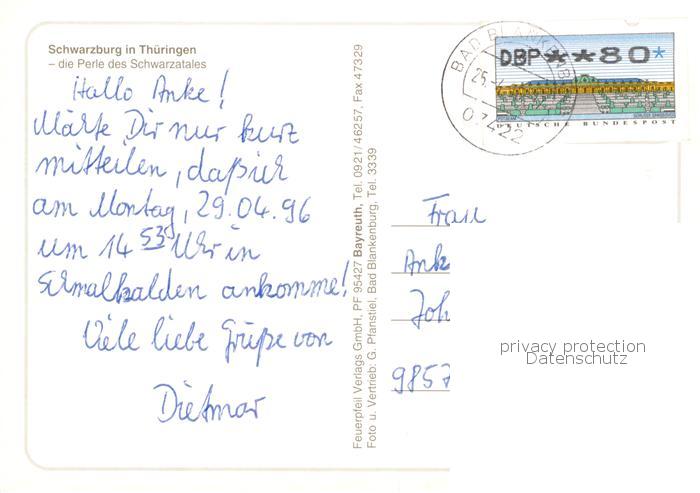 Schwarzburg in Thüringen
– die Perle des Schwarzatales
Hallo Anke!
Möchte Dir nur kurz
mitteilen, daß ich
am Montag, 29.04.96
um 14 53 Uhr in
Schmalkalden ankomme!
Viele liebe Grüße von
Dietmar
Feuerpfeil Verlags GmbH, PF 95427 Bayreuth, Tel. 0921/46257, Fax 47329
Foto u. Vertrieb: G. Pfanstiel, Bad Blankenburg, Tel. 3339
BAD BLANKENB
25.
07422
DBP**80*
DEUTSCHE BUNDESPOST
Frau
Ank
Joh
9857
privacy protection
Datenschutz